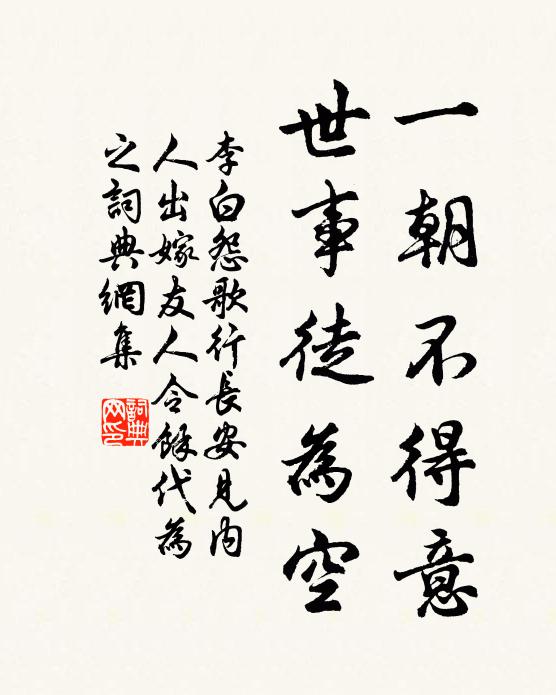 一朝不得意
世事徒為空
李白怨歌行長安見內
人出嫁友人令餘代為
之詞典網集
詞典網印